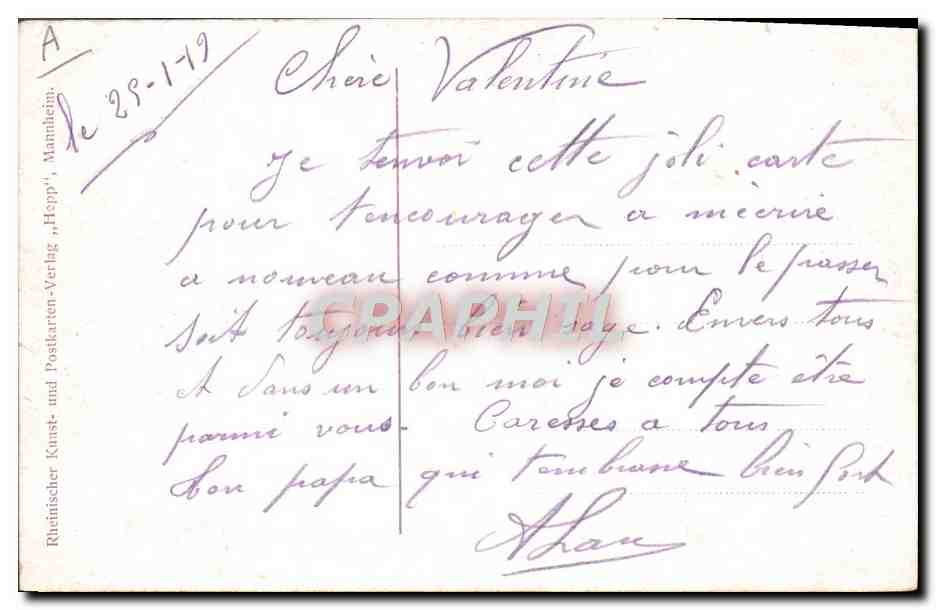 A
le 29-1-19
Chère Valentine
Je tenvoi cette joli carte
pour tencourager a mécrire
a nouveau comme pour le passer
soit toujour bien sage. Envers tous
et dans un bon moi je compte être
parmi vous. Caresses a tous
ton papa qui tembrasse bien fort
Rheinischer Kunst- und Postkarten-Verlag „Hepp“, Mannheim.
CPAPHIL